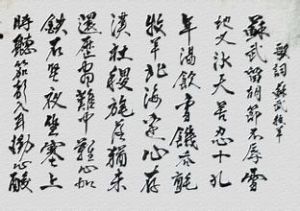 歌詞蘇武牧羊
蘇武留胡節不辱雪
地又冰天苦忍十九
年渴飲雪饑吞氈
牧羊北海邊心存
漢社稷旄落猶未
還歷盡難中難心如
鐵石堅夜坐塞上
時聽笳聲入耳慟心酸